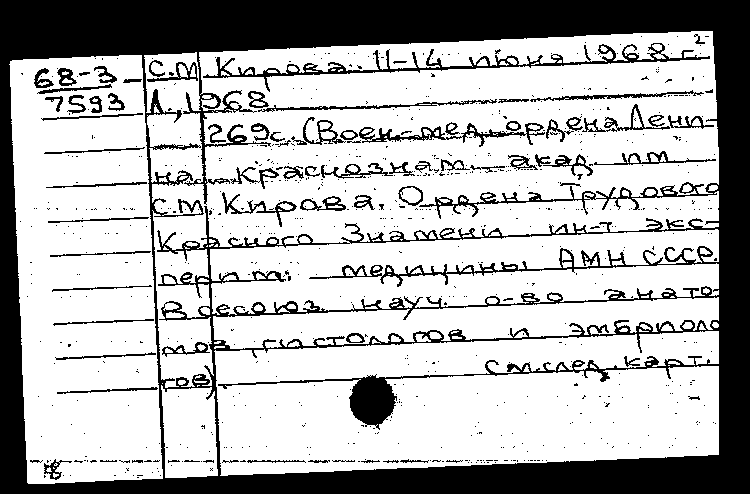 2
68-3 С.М. Кирова. 11-14 июня 1968 г.
7593 Л., 1968.
269с. (Воен-мед. ордена Лени-
на краснознам. акад. им
С.М. Кирова. Ордена Трудового
Красного Знамени ин-т экс-
перим. медицины АМН СССР.
Всесоюз науч. о-во анато-
мов, гистологов и эмбриоло
гов).
см.след.карт.